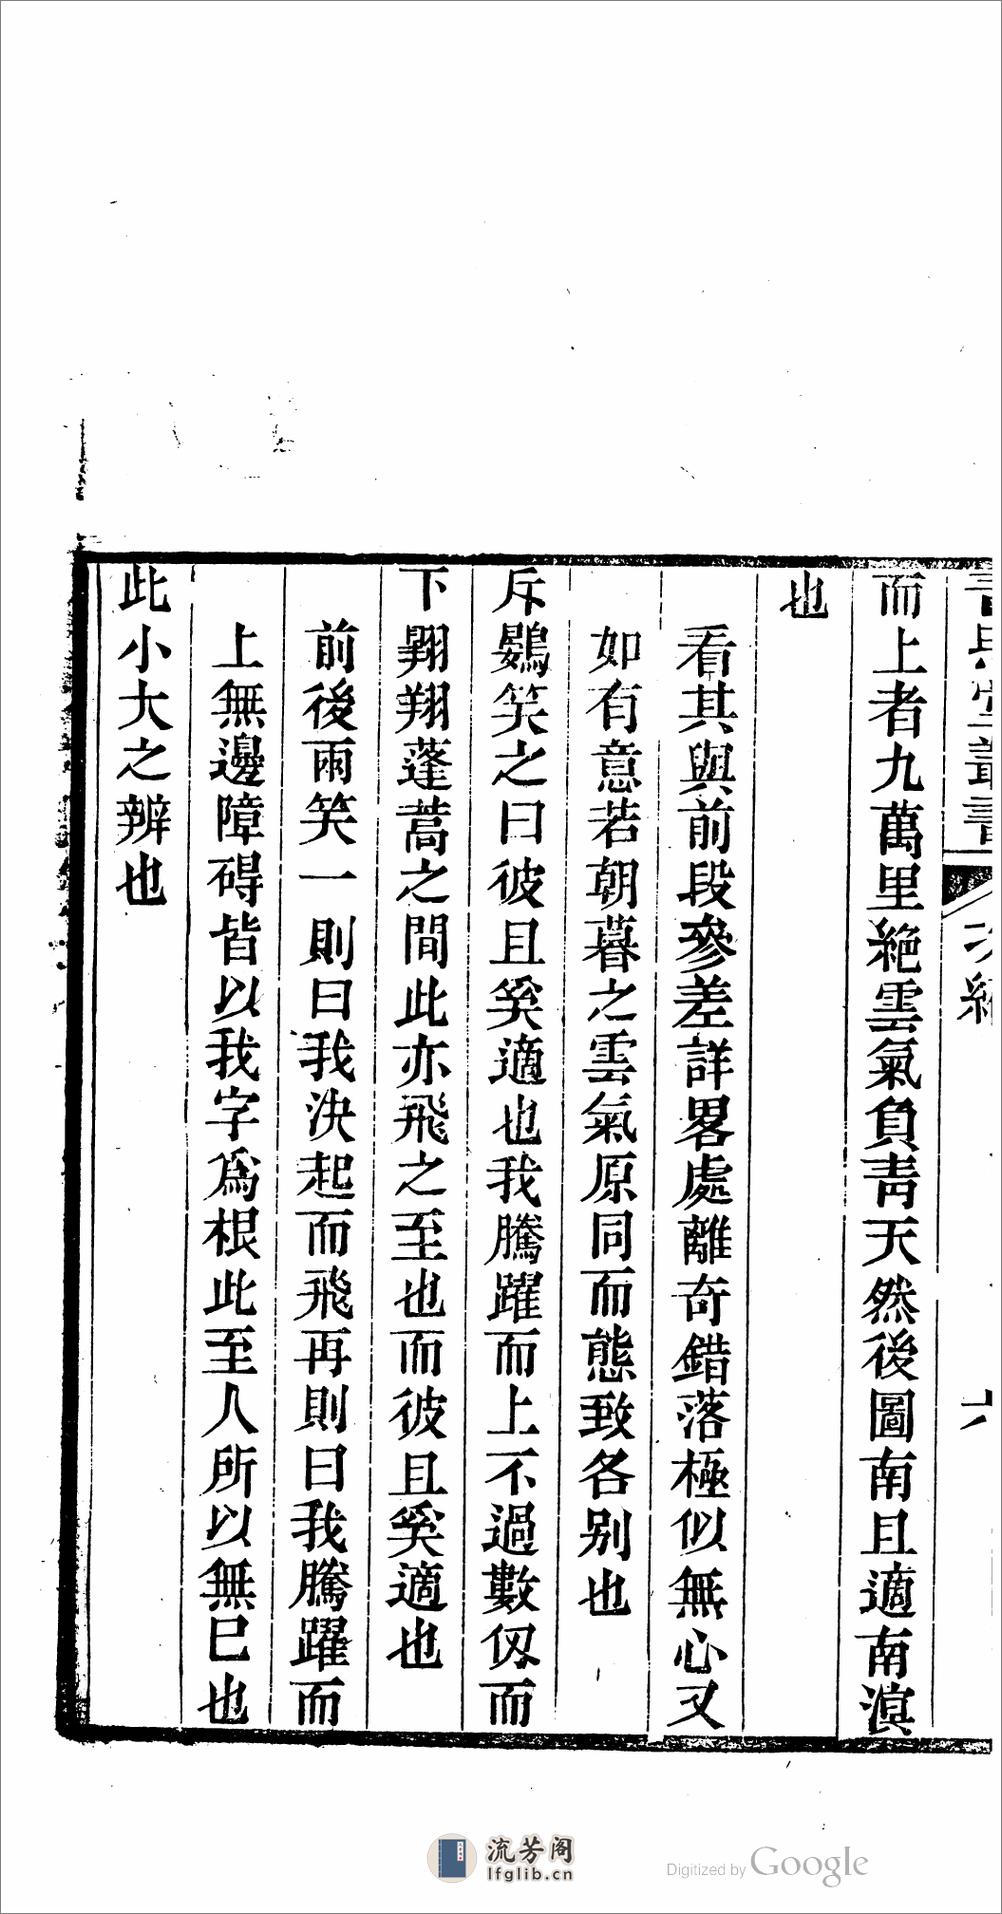 而上者九萬里絶雲氣負靑天然後圖南且適南溟
也
看其與前段參差詳畧處離奇錯落極似無心又
如有意若朝暮之雲氣原同而態致各别也
斥鷃笑之曰彼且奚適也我騰躍而上不過數仭而
下翱翔蓬蒿之間此亦飛之至也而彼且奚適也
前後兩笑一則曰我決起而飛再則曰我騰躍而
上無邊障碍皆以我字爲根此至人所以無巳也
此小大之辨也
流芳阁
lfglib.cn
Digitized by Google